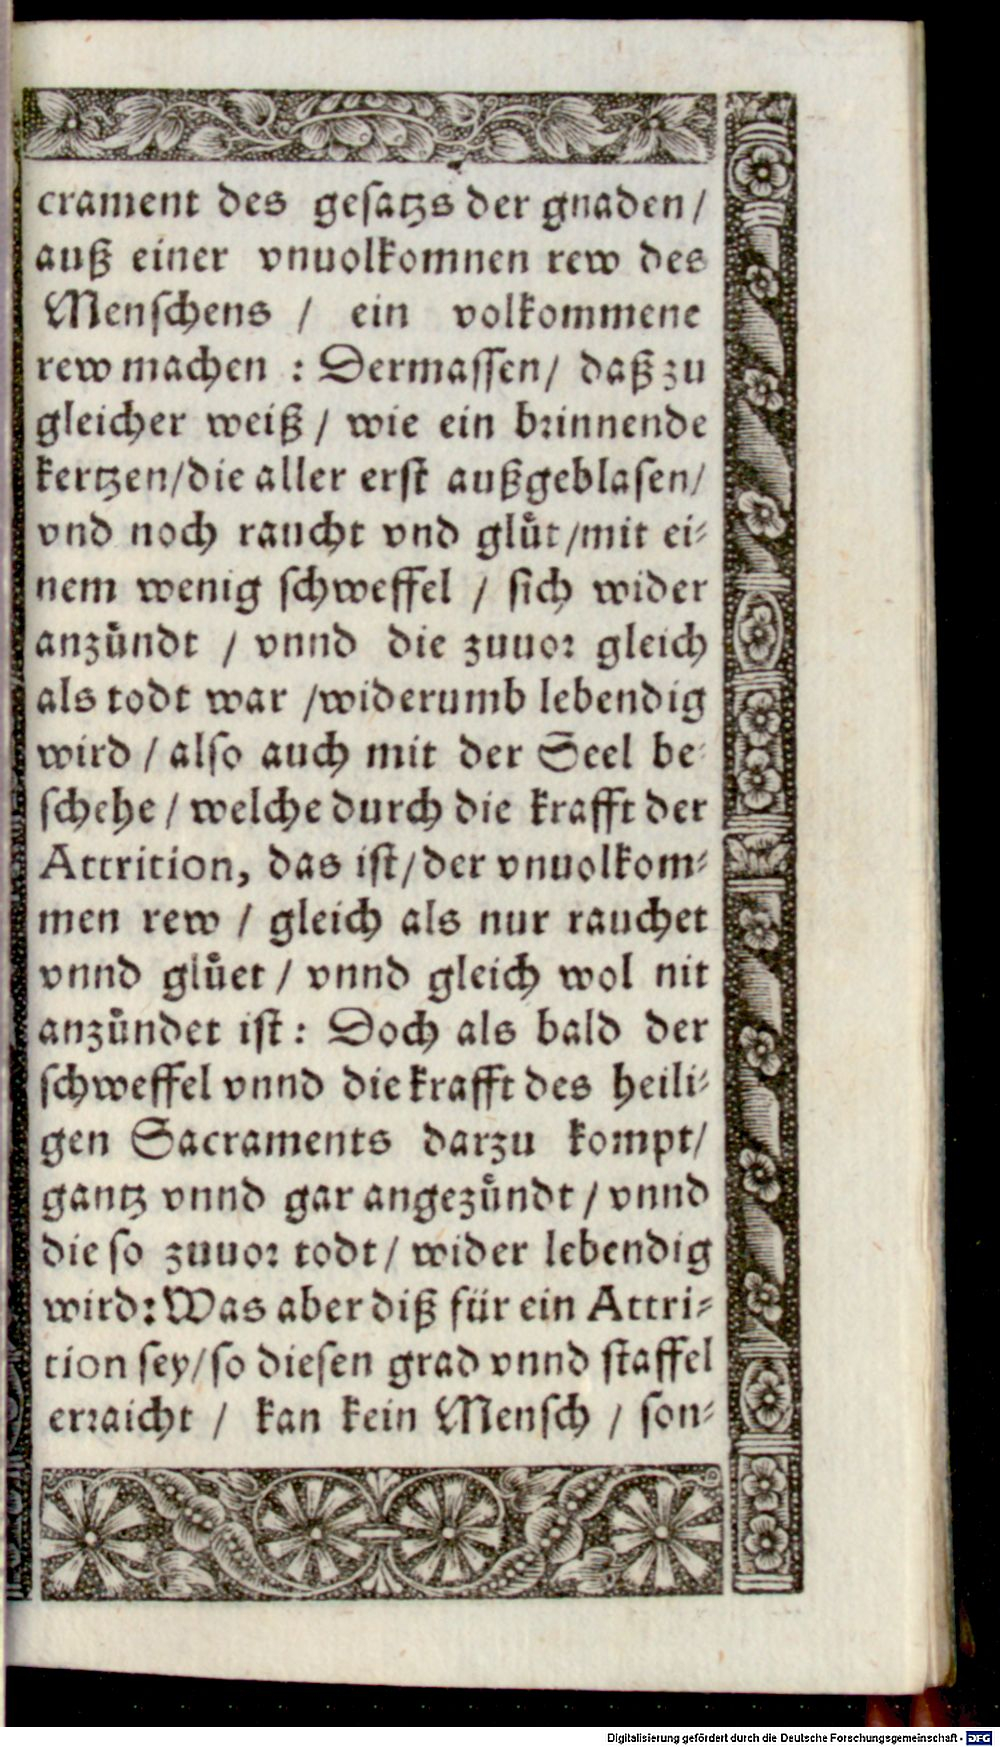 crament des gesatzs der gnaden /
auß einer vnuolkomnen rew des
Menschens / ein volkommene
rew machen : Dermassen / daß zu
gleicher weiß / wie ein brinnende
kertzen/die aller erst außgeblasen/
vnd noch raucht vnd glůt /mit ei-
nem wenig schweffel / sich wider
anzůndt / vnnd die zuuor gleich
als todt war /widerumb lebendig
wird / also auch mit der Seel be-
schehe / welche durch die krafft der
Attrition, das ist/der vnuolkom-
men rew / gleich als nur rauchet
vnnd glůet / vnnd gleich wol nit
anzůndet ist : Doch als bald der
schweffel vnnd die krafft des heili-
gen Sacraments darzu kompt/
gantz vnnd gar angezůndt / vnnd
die so zuuor todt / wider lebendig
wird: Was aber diß für ein Attri-
tion sey/so diesen grad vnnd staffel
erraicht / kan kein Mensch / son-
Digitalisierung gefördert durch die Deutsche Forschungsgemeinschaft - DFG